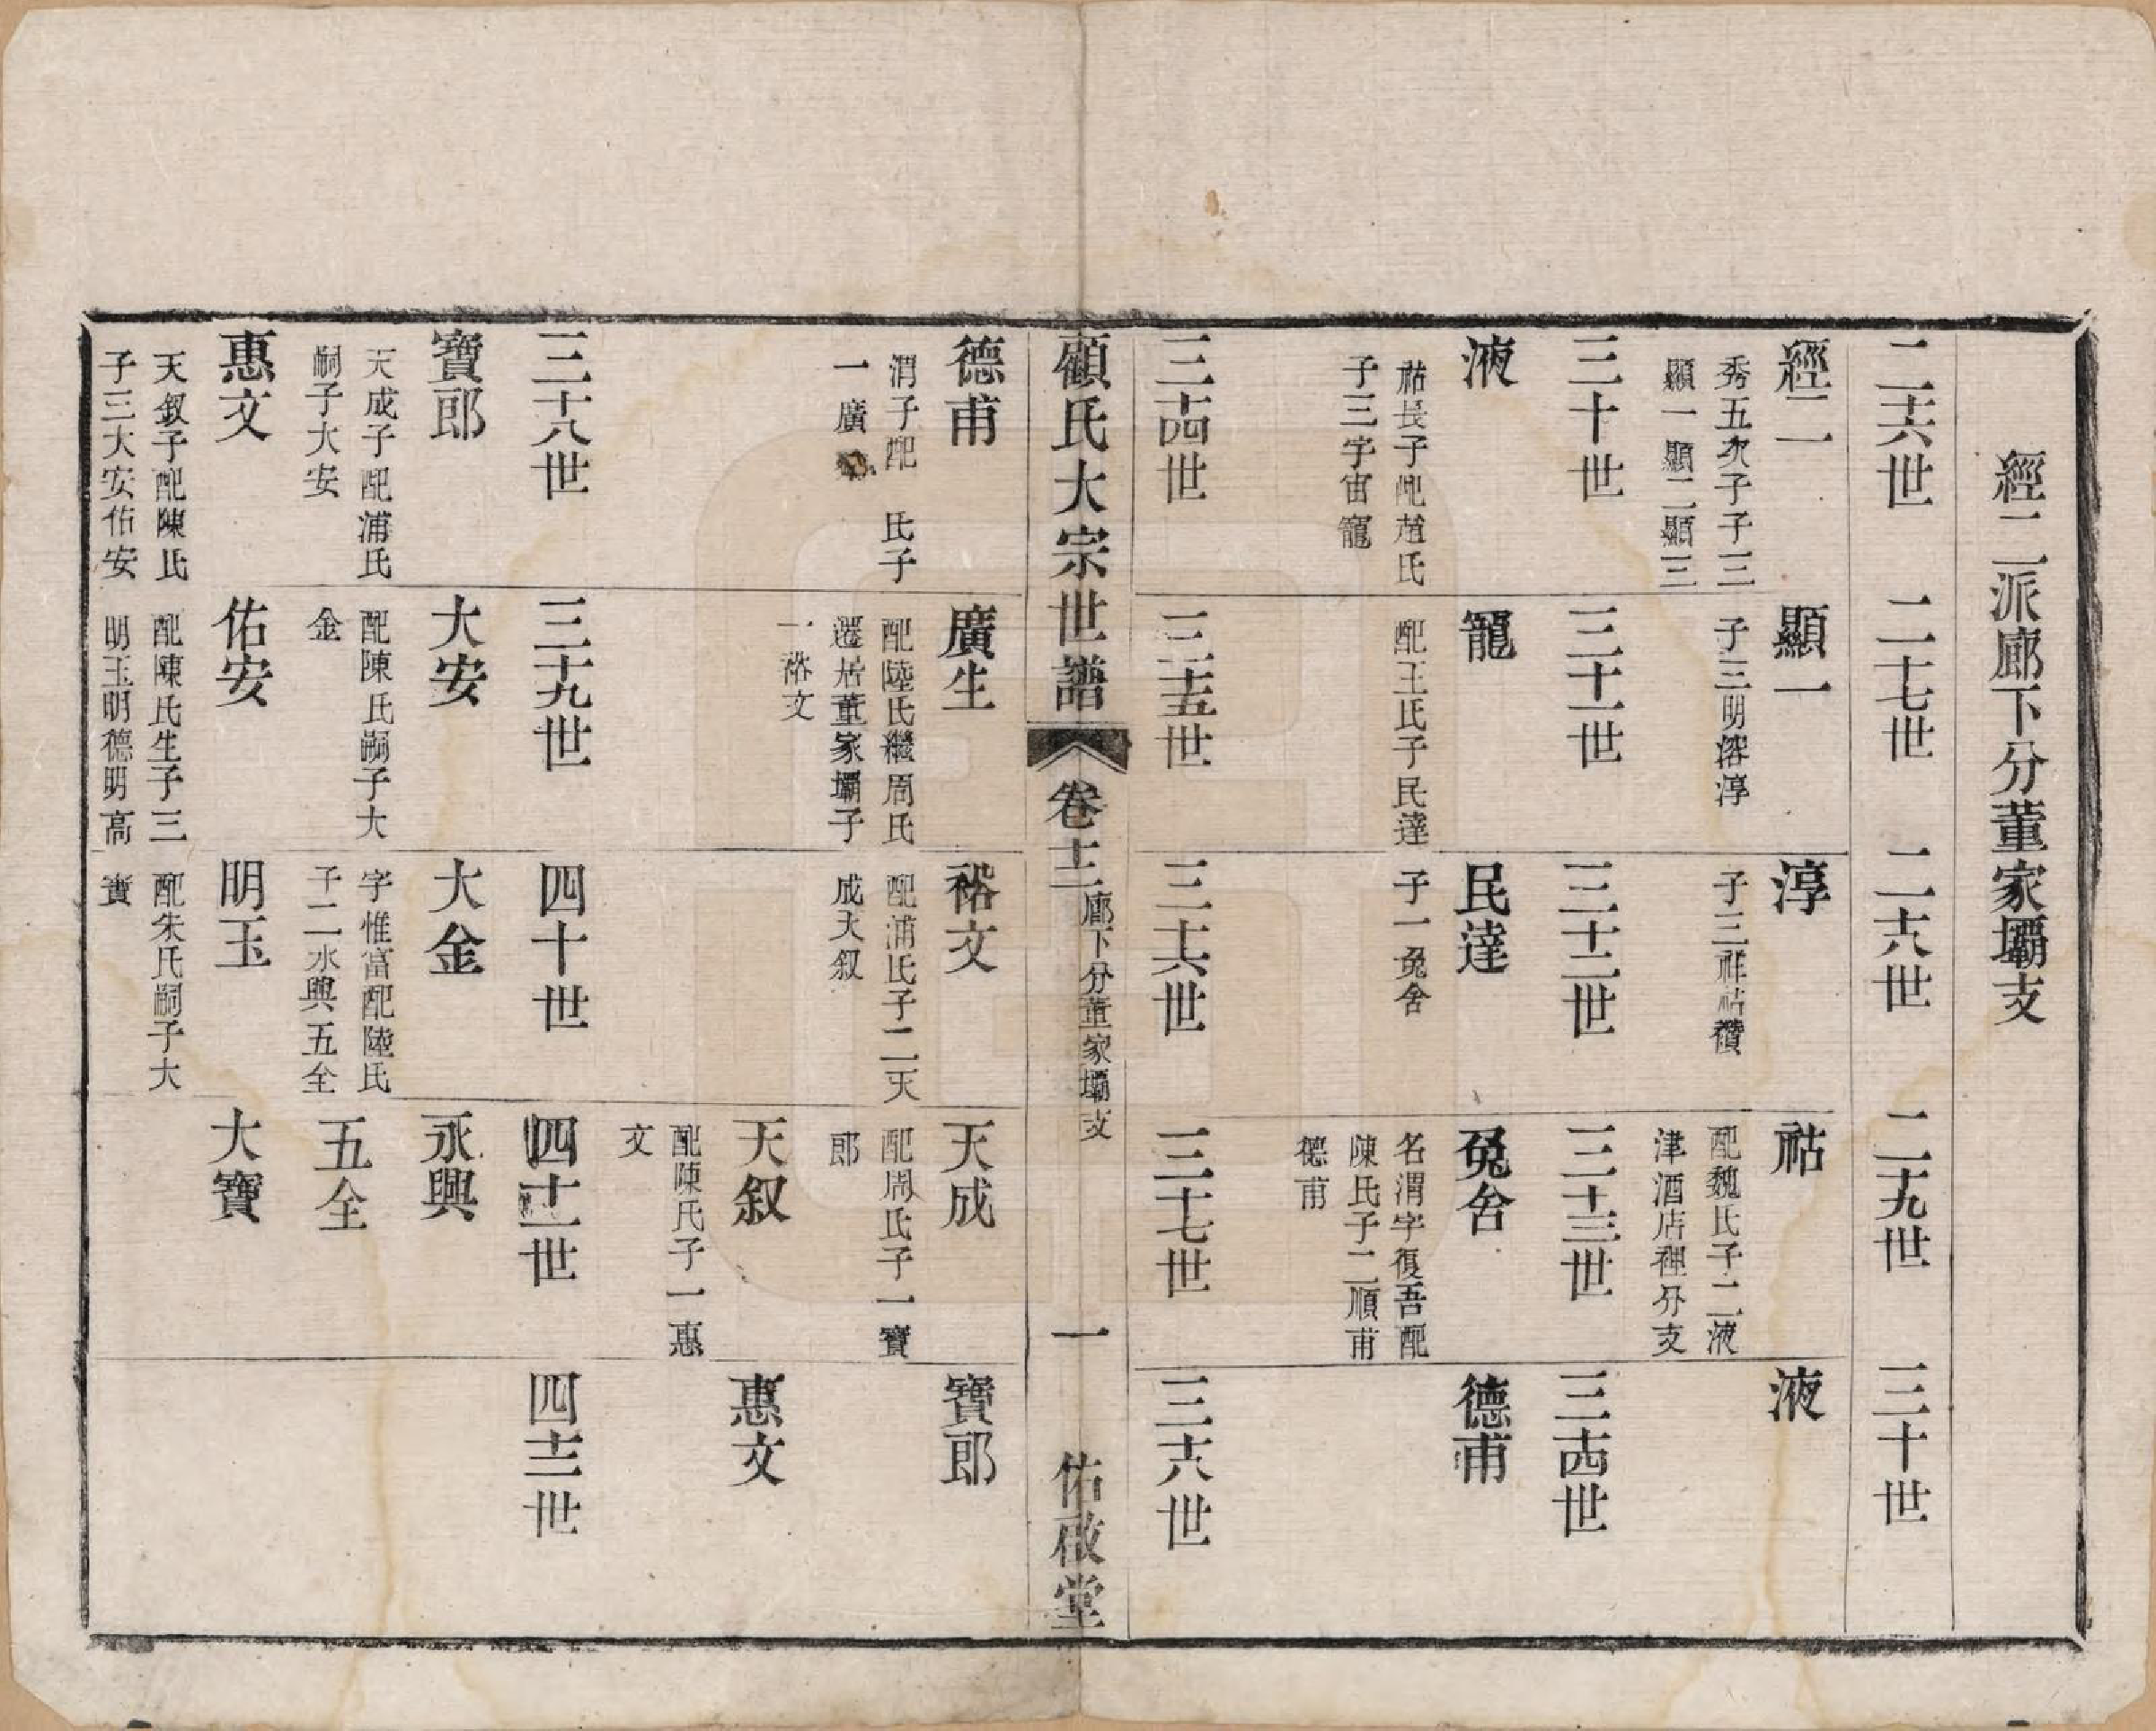 經二派廊下分董家壩支
二十六世
二十七世
二十八世
二十九世
三十世
經二
秀五次子子三
顯一顯二顯三
顯一
子三明溶淳
淳
子三祥祜襸
祜
配魏氏子二液
津酒店裡分支
液
三十世
三十一世
三十二世
三十三世
三十四世
液
祜長子配趙氏
子三字宙寵
寵
配王氏子民達
民達
子一兔舍
兔舍
名渭字復吾配
陳氏子二順甫
德甫
德甫
三十四世
三十五世
三十六世
三十七世
三十八世
顧氏大宗世譜
卷十二
廊下分董家壩支
一
佑啟堂
德甫
渭子配 氏子
一廣
廣生
配陸氏繼周氏
遷居董家壩子
一裕文
裕文
配浦氏子二天
成天叙
天成
配周氏子一寶
郎
寶郎
天叙
配陳氏子一惠
文
惠文
三十八世
三十九世
四十世
四十一世
四十二世
寶郎
天成子配浦氏
嗣子大安
大安
配陳氏嗣子大
金
大金
字惟富配陸氏
子二永興五全
永興
五全
惠文
天叙子配陳氏
子三大安佑安
佑安
配陳氏生子三
明玉明德明高
明玉
配朱氏嗣子大
寶
大寶